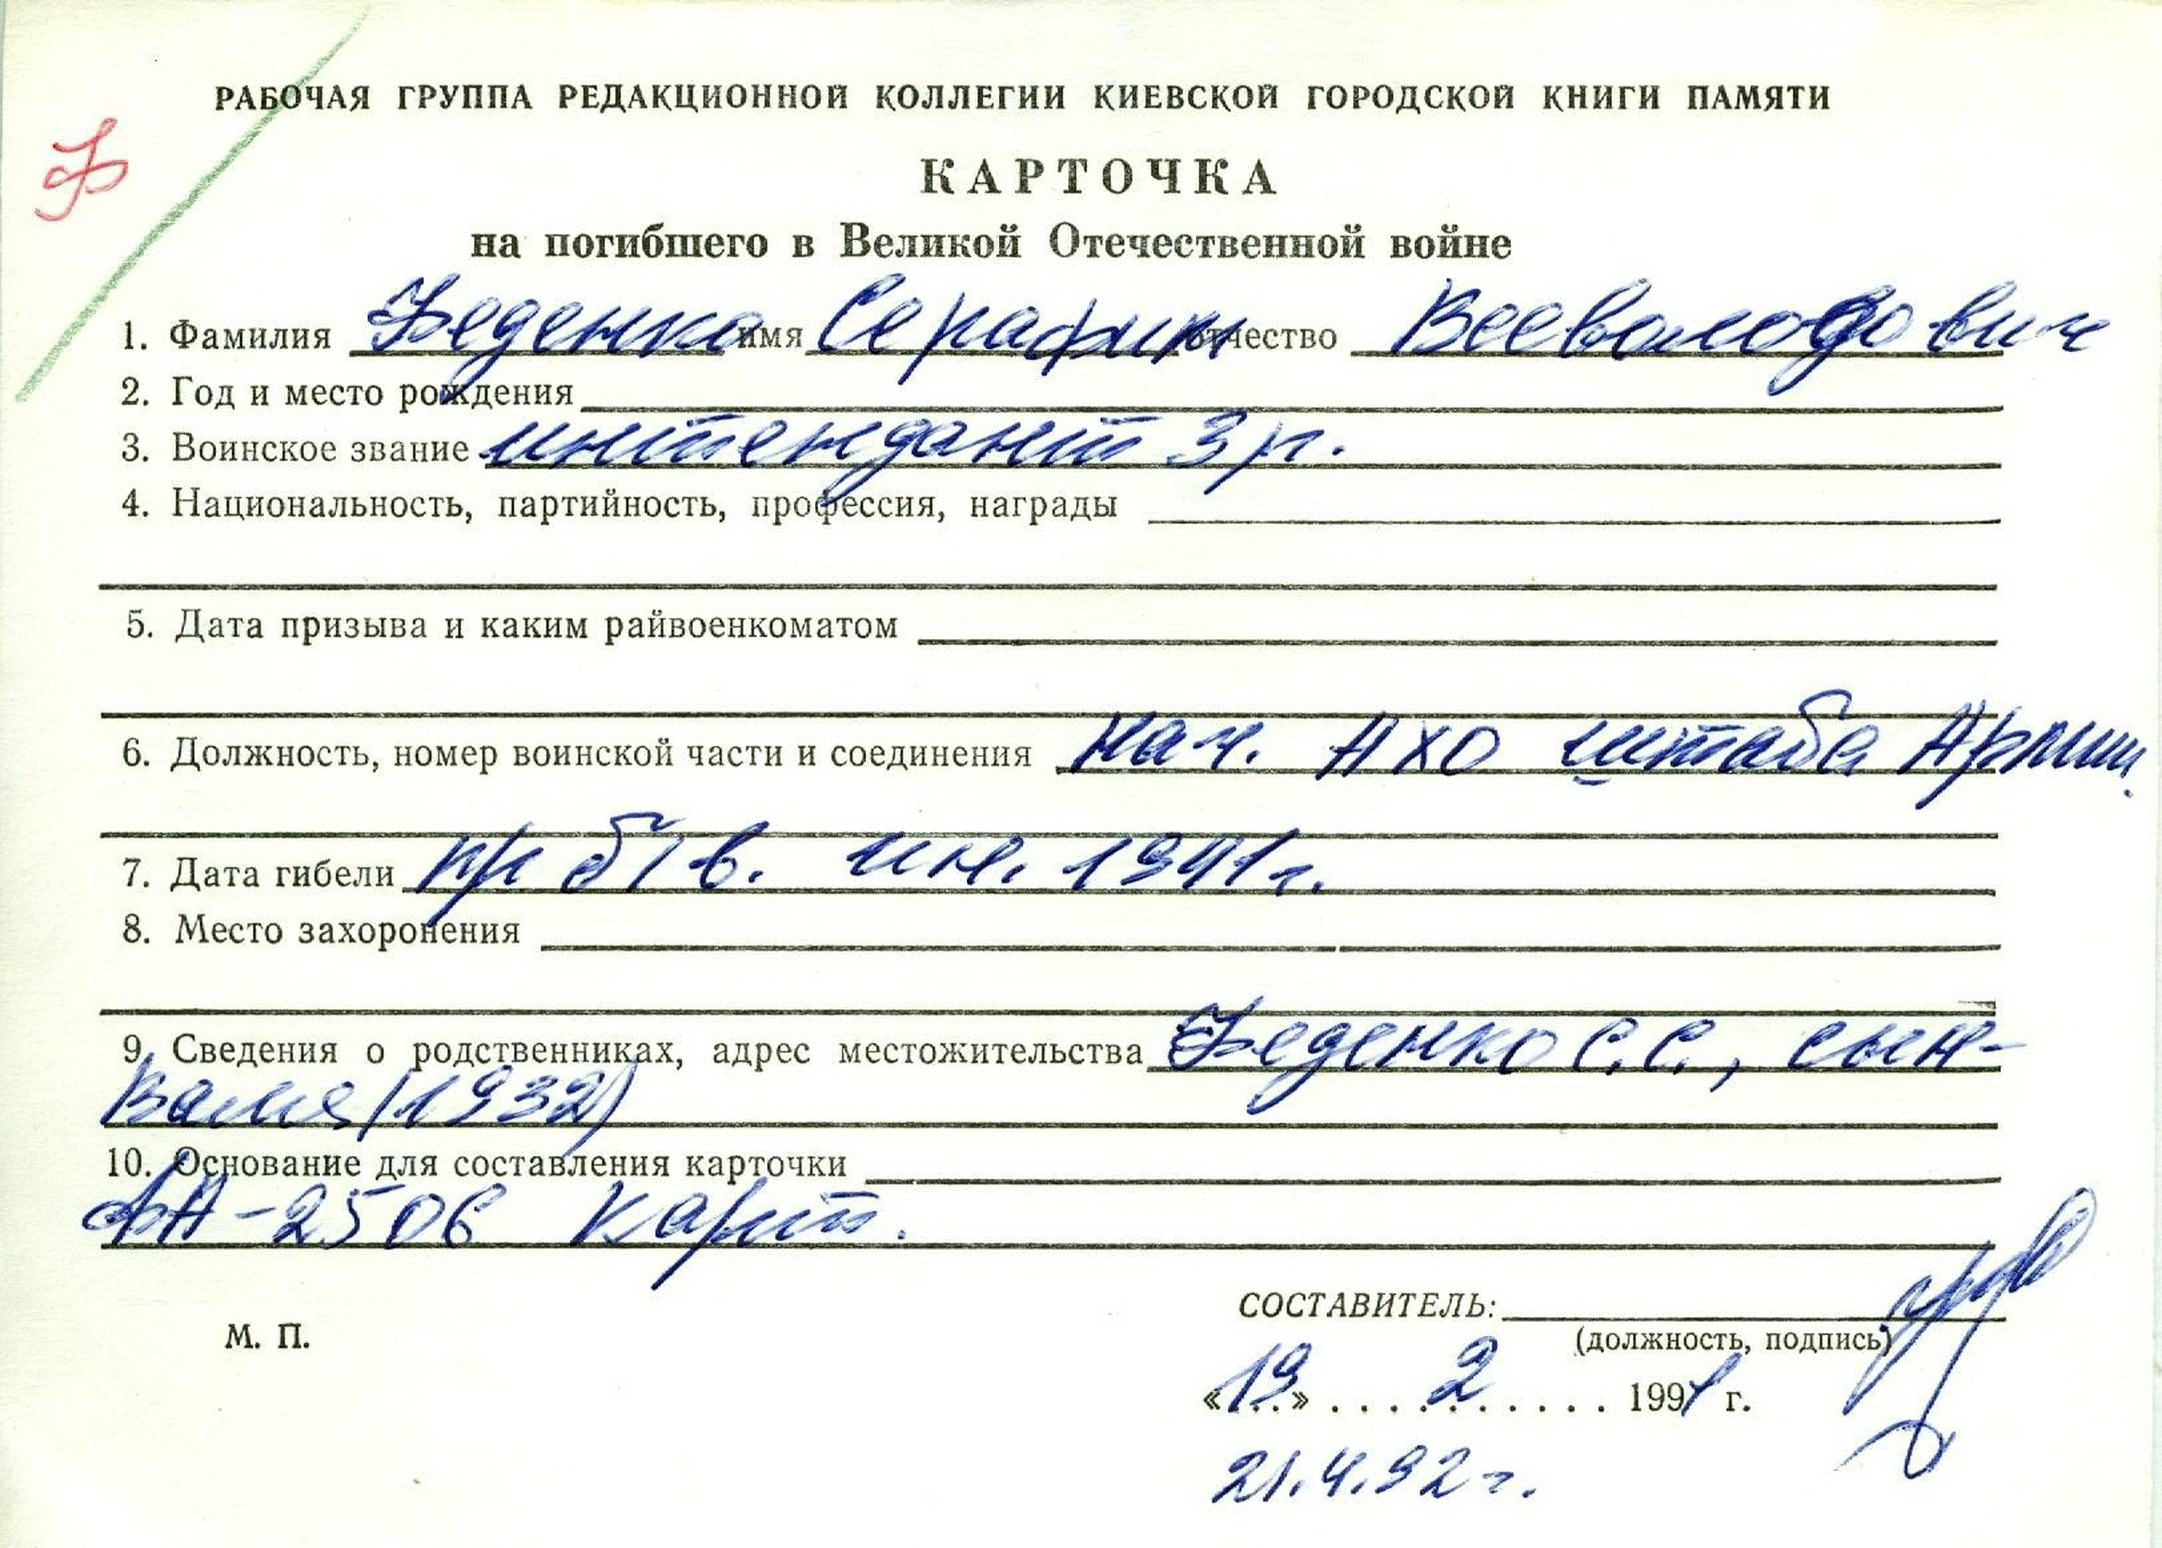 РАБОЧАЯ ГРУППА РЕДАКЦИОННОЙ КОЛЛЕГИИ КИЕВСКОЙ ГОРОДСКОЙ КНИГИ ПАМЯТИ
Ф
КАРТОЧКА
на погибшего в Великой Отечественной войне
1. Фамилия Феденко имя Серафим отчество Всеволодович
2. Год и место рождения
3. Воинское звание интендант 3 р.
4. Национальность, партийность, профессия, награды
5. Дата призыва и каким райвоенкоматом
6. Должность, номер воинской части и соединения нач. АХО штаба Армии
7. Дата гибели пр б/в. 1941 г.
8. Место захоронения
9. Сведения о родственниках, адрес местожительства Феденко С.С., сын-
(1932)
10. Основание для составления карточки
ФА-2506 карт.
СОСТАВИТЕЛЬ:
М. П.
(должность, подпись)
«19» 2 1991 г.
21.4.92 г.